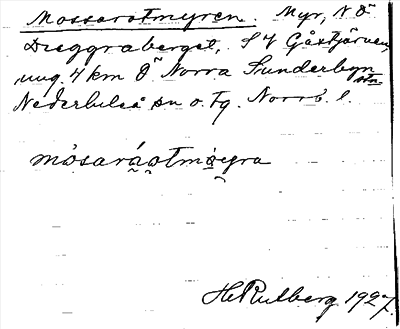 Mossarotmyren. Myr, N Ö
Dreggraberget, S V Gåstjärnen,
ung. 4 km Ö Norra Sunderbyn stn
Nederluleå sn o. Tg. Norrb. l.
mòsarǻotmỳra
H. Rulberg 1927.